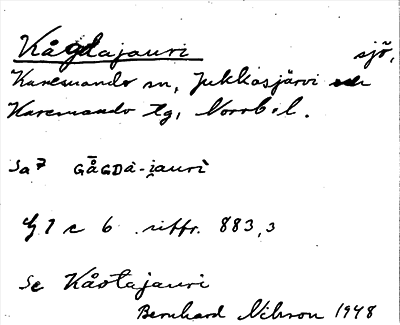 Kågdajauri sjö,
Karesuando sn, Jukkasjärvi och
Karesuando tg, Norrb.l.
Sa7 GÅ̄GDȧ-i̯aurì
7 c 6 siffr. 883,3
Se Kåotajauri
Bernhard Nilsson 1948